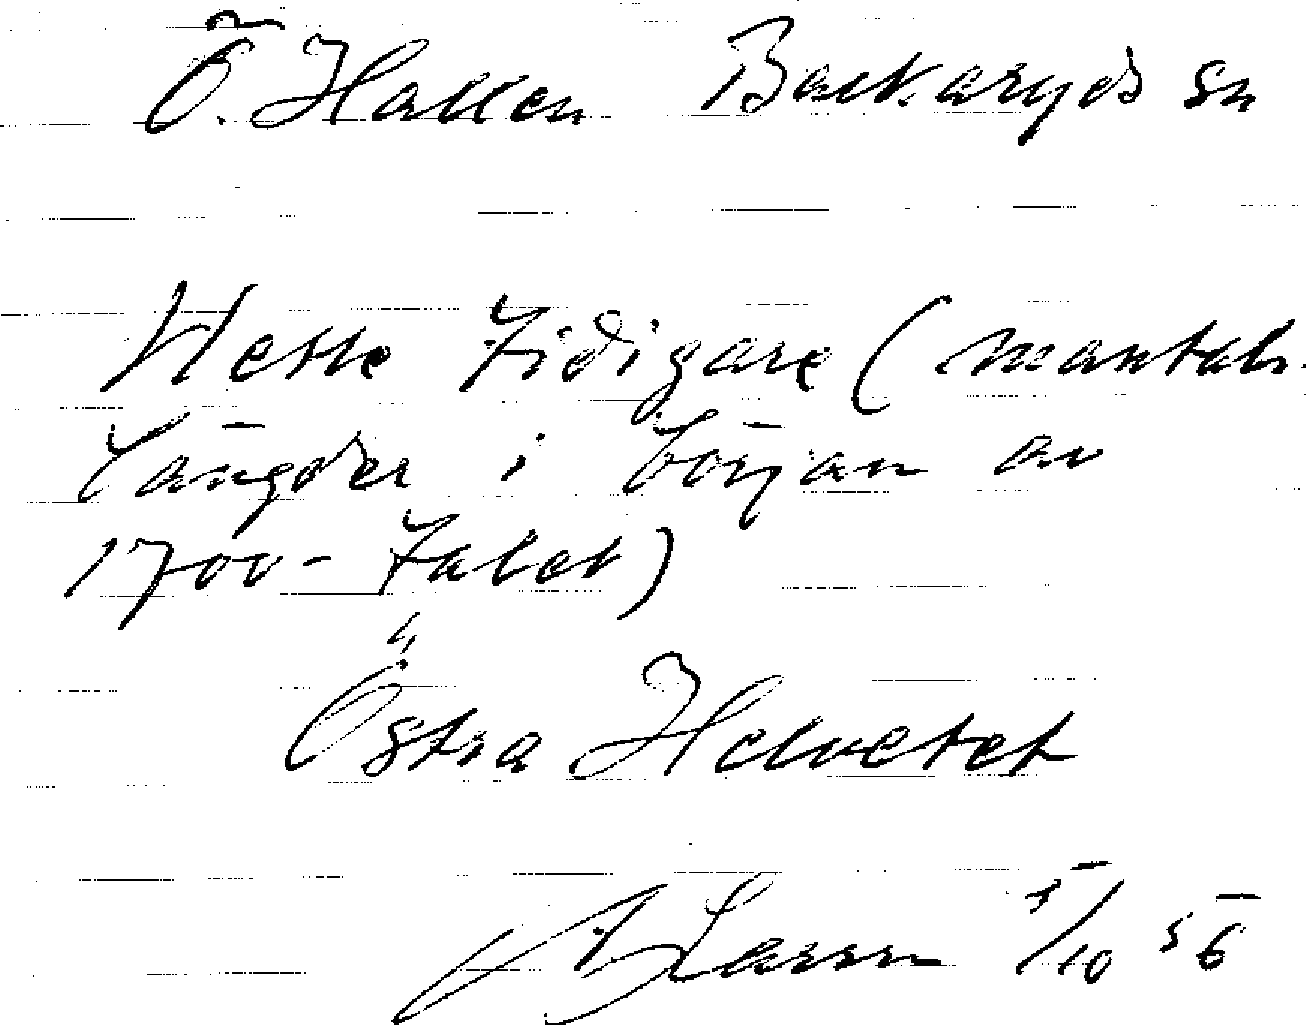 Ö. Hallen Backaryds sn
Hette tidigare (mantals-
längder i början av
1700-talet)
Östra Helvetet
Larsson 5/10 56